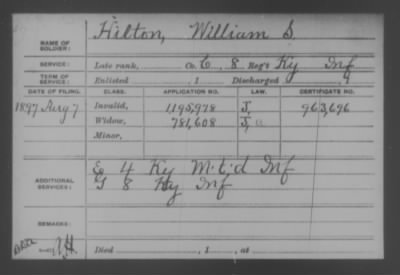 Hilton, William S.
NAME OF SOLDIER:
SERVICE: Late rank, Co. C, 8 Reg't Ky Inf
TERM OF SERVICE: Enlisted , 1 Discharged , 1
DATE OF FILING. CLASS. APPLICATION NO. LAW. CERTIFICATE NO.
1897 Aug 7 Invalid, 1195,978 J, 963,696
Widow, 781,608 J, a
Minor,
E 4 Ky M.t.d Inf
ADDITIONAL SERVICES: I 8 Ky Inf
REMARKS:
Died , 1 , at